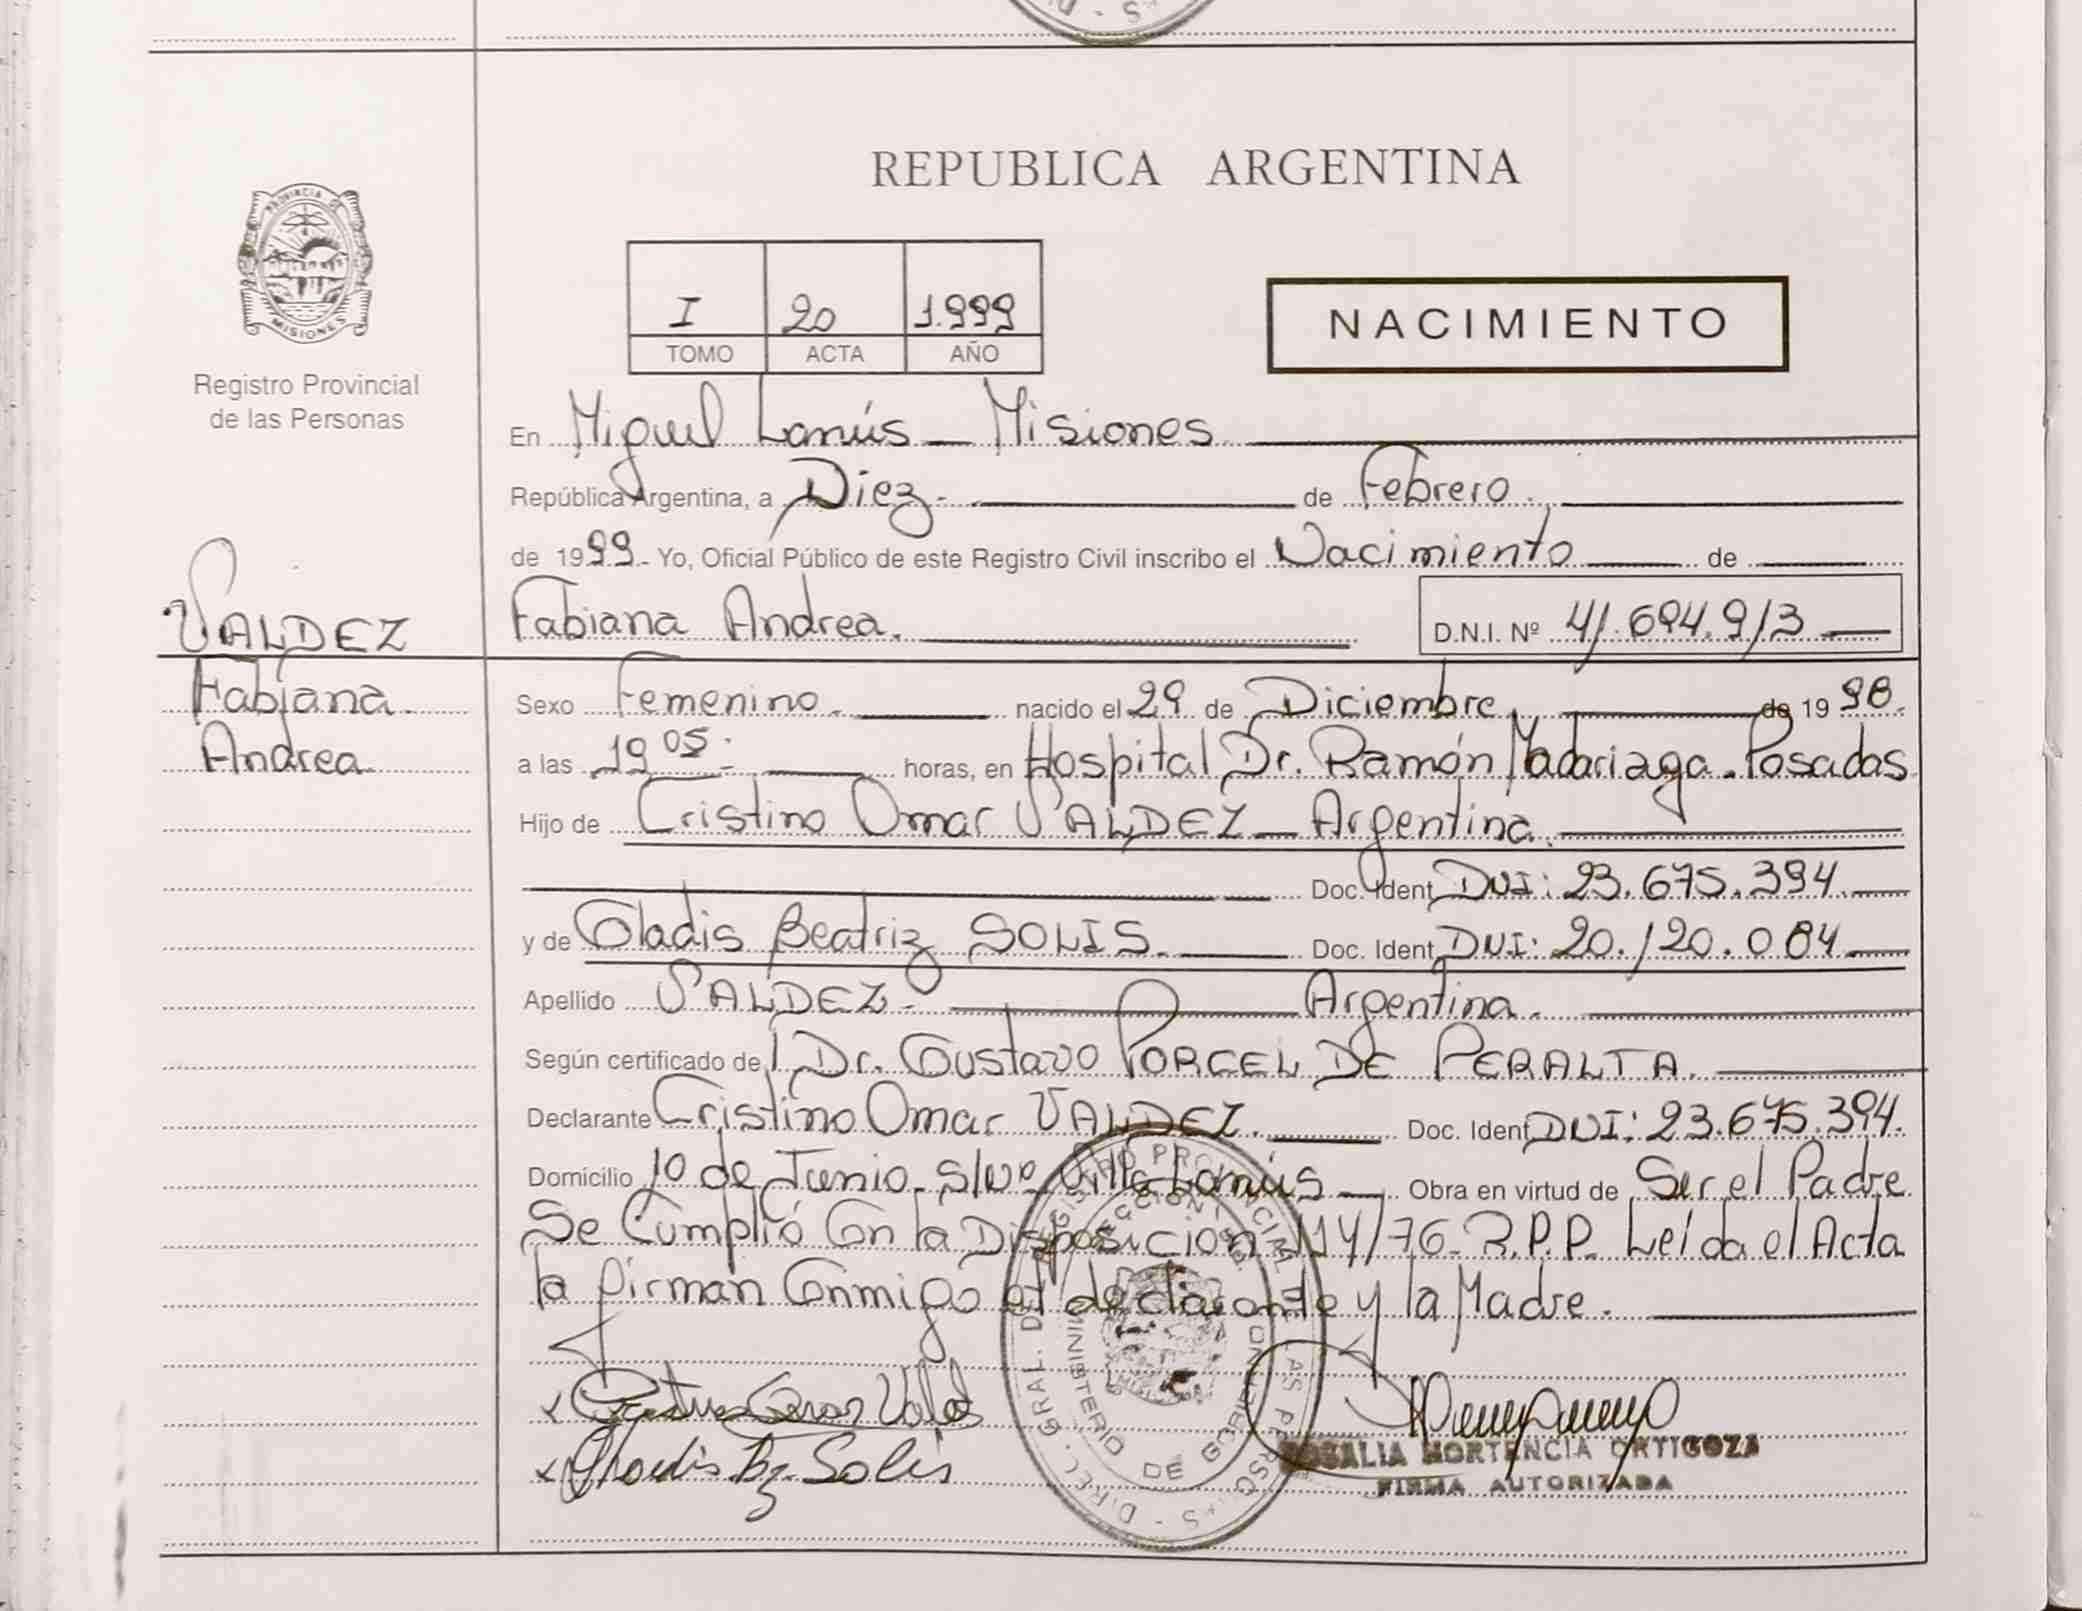 REPUBLICA ARGENTINA
PROVINCIA DE
MISIONES
Registro Provincial
de las Personas
I 20 1.999
TOMO ACTA AÑO
NACIMIENTO
En Miguel Lanús - Misiones
República Argentina, a Diez.- de Febrero.
de 1999.- Yo, Oficial Público de este Registro Civil inscribo el Nacimiento de
VALDEZ
Fabiana Andrea. D.N.I. Nº 41.694.913
Fabiana.
Andrea
Sexo Femenino. nacido el 29 de Diciembre de 1998.
a las 19 05 horas, en Hospital Dr. Ramón Madariaga. Posadas
Hijo de Cristino Omar VALDEZ - Argentina
Doc. Ident. DNI: 23.675.394
y de Gladis Beatriz SOLIS. Doc. Ident. DNI: 20.120.084
Apellido VALDEZ.- Argentina.
Según certificado del Dr. Gustavo PORCEL DE PERALTA.
Declarante Cristino Omar VALDEZ. Doc. Ident. DNI: 23.675.394.
Domicilio 10 de Junio. s/Nº Villa Lanús Obra en virtud de Ser el Padre
Se Cumplió Con la Disposicion 114/76 R.P.P. Leída el Acta
la firman Conmigo el declarante y la Madre.
DIREC. GRAL. DEL REGISTRO PROVINCIAL DE LAS PERSONAS
MINISTERIO DE GOBIERNO
x Cristino Omar Valdez
x Gladis Bz. Solis
ROSALIA HORTENCIA ORTIGOZA
FIRMA AUTORIZADA